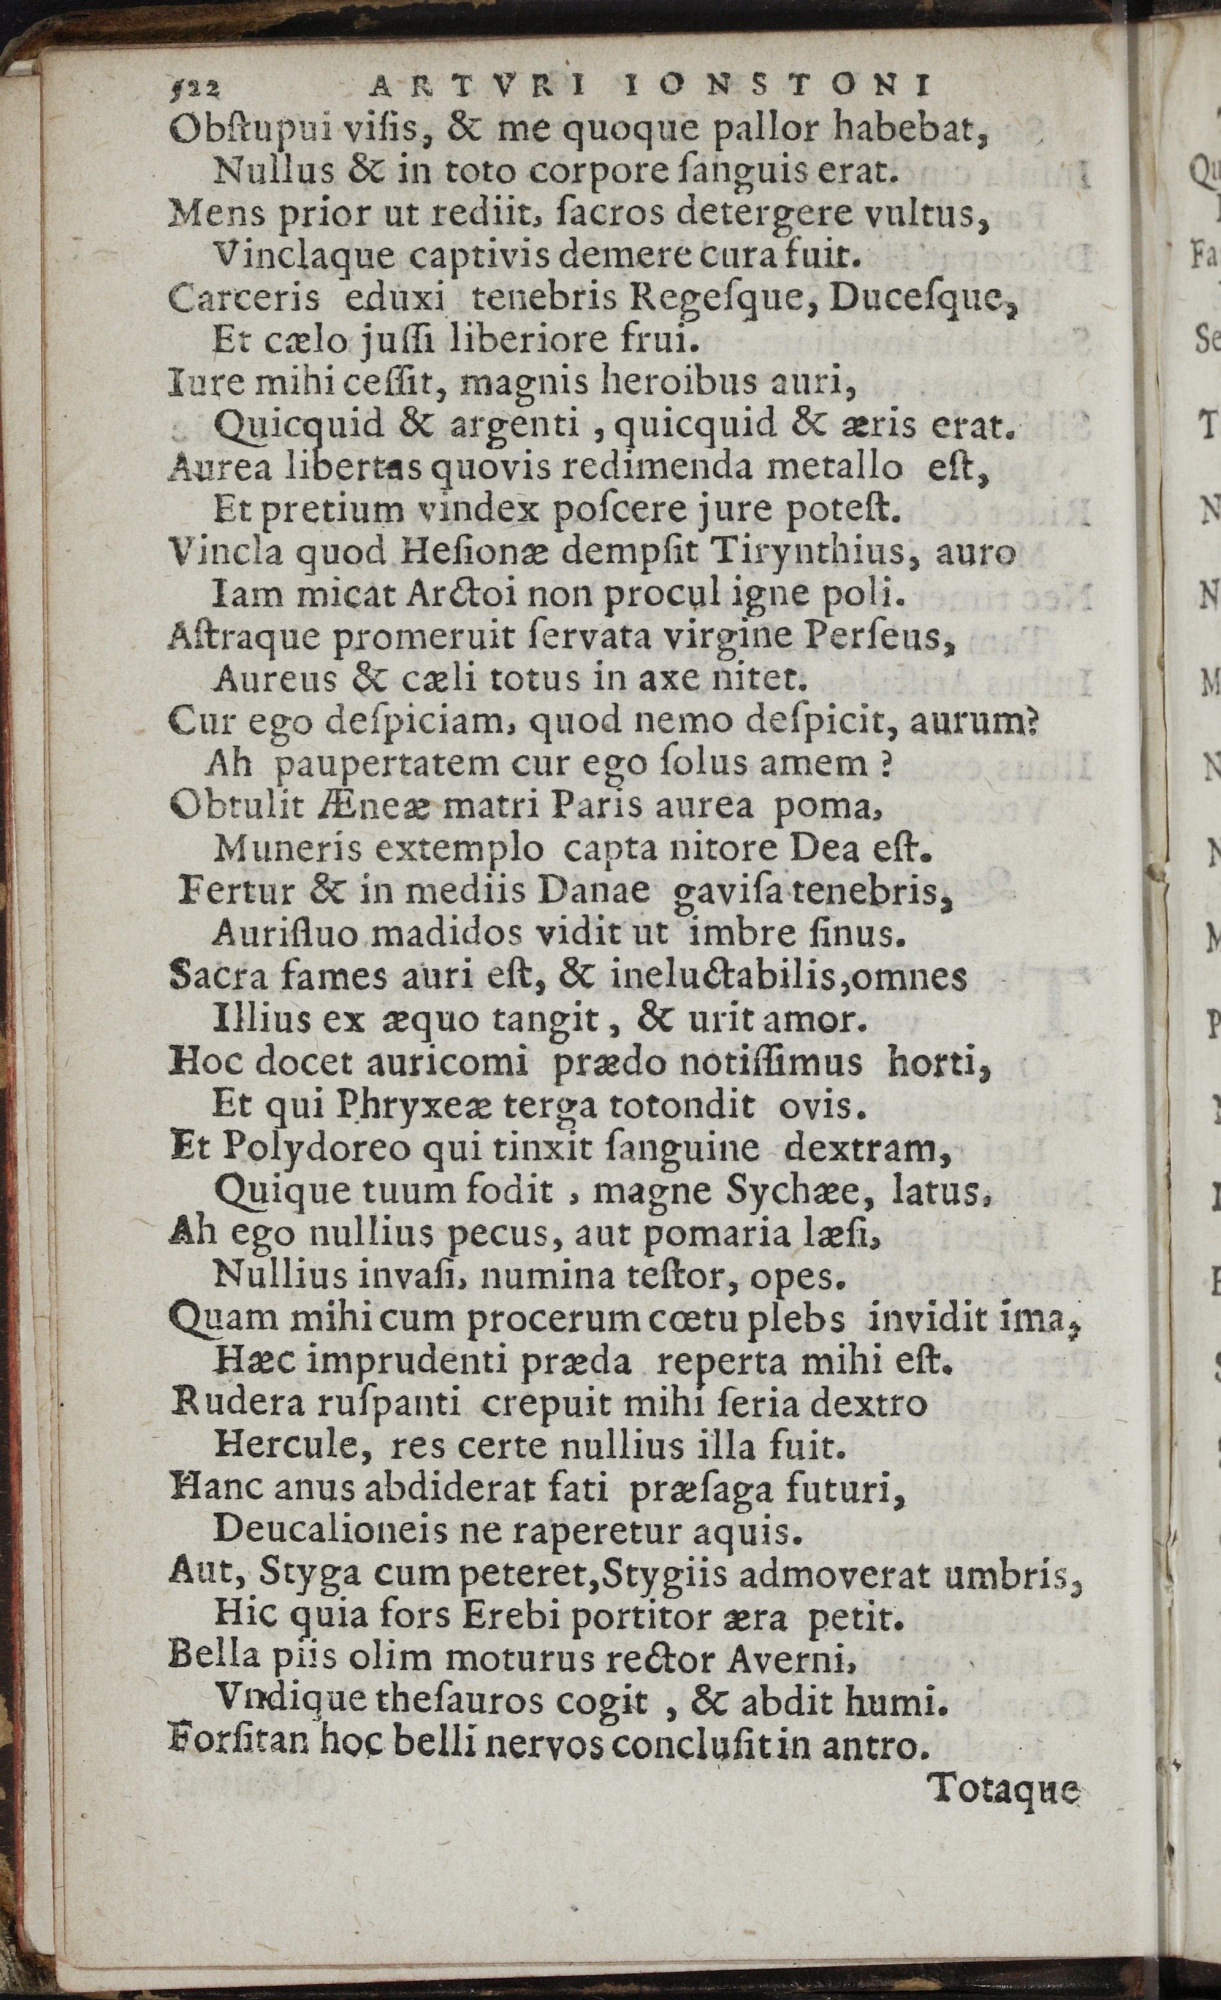 522 ARTVRI IONSTONI
Obſtupui viſis, & me quoque pallor habebat,
Nullus & in toto corpore ſanguis erat.
Mens prior ut rediit, ſacros detergere vultus,
Vinclaque captivis demere cura fuit.
Carceris eduxi tenebris Regeſque, Duceſque,
Et cælo juſſi liberiore frui.
Iure mihi ceſſit, magnis heroibus auri,
Quicquid & argenti , quicquid & æris erat.
Aurea libertas quovis redimenda metallo eſt,
Et pretium vindex poſcere jure poteſt.
Vincla quod Heſionæ dempſit Tirynthius, auro
Iam micat Arctoi non procul igne poli.
Aſtraque promeruit ſervata virgine Perſeus,
Aureus & cæli totus in axe nitet.
Cur ego deſpiciam, quod nemo deſpicit, aurum?
Ah paupertatem cur ego ſolus amem ?
Obtulit Æneæ matri Paris aurea poma,
Muneris extemplo capta nitore Dea eſt.
Fertur & in mediis Danae gaviſa tenebris,
Aurifluo madidos vidit ut imbre ſinus.
Sacra fames auri eſt, & ineluctabilis,omnes
Illius ex æquo tangit , & urit amor.
Hoc docet auricomi prædo notiſſimus horti,
Et qui Phryxeæ terga totondit ovis.
Et Polydoreo qui tinxit ſanguine dextram,
Quique tuum fodit , magne Sychæe, latus,
Ah ego nullius pecus, aut pomaria læſi,
Nullius invaſi, numina teſtor, opes.
Quam mihi cum procerum cœtu plebs invidit ima,
Hæc imprudenti præda reperta mihi eſt.
Rudera ruſpanti crepuit mihi ſeria dextro
Hercule, res certe nullius illa fuit.
Hanc anus abdiderat fati præſaga futuri,
Deucalioneis ne raperetur aquis.
Aut, Styga cum peteret,Stygiis admoverat umbris,
Hic quia fors Erebi portitor æra petit.
Bella piis olim moturus rector Averni,
Vndique theſauros cogit , & abdit humi.
Forſitan hoc belli nervos concluſit in antro.
Totaque